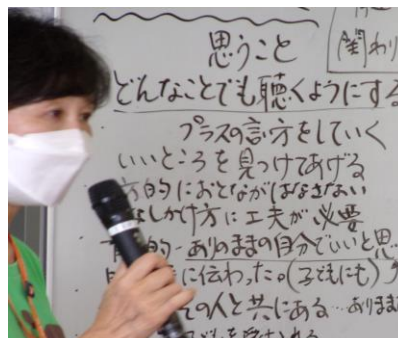 関わり
思うこと
どんなことでも聴くようにする
プラスの言い方をしていく
いいところを見つけてあげる
方的におとながはなさない
なしかけ方に工夫が必要
的-ありのままの自分でいいと思…
に伝わった。(子どもにも)
の人と共にある…ありまま